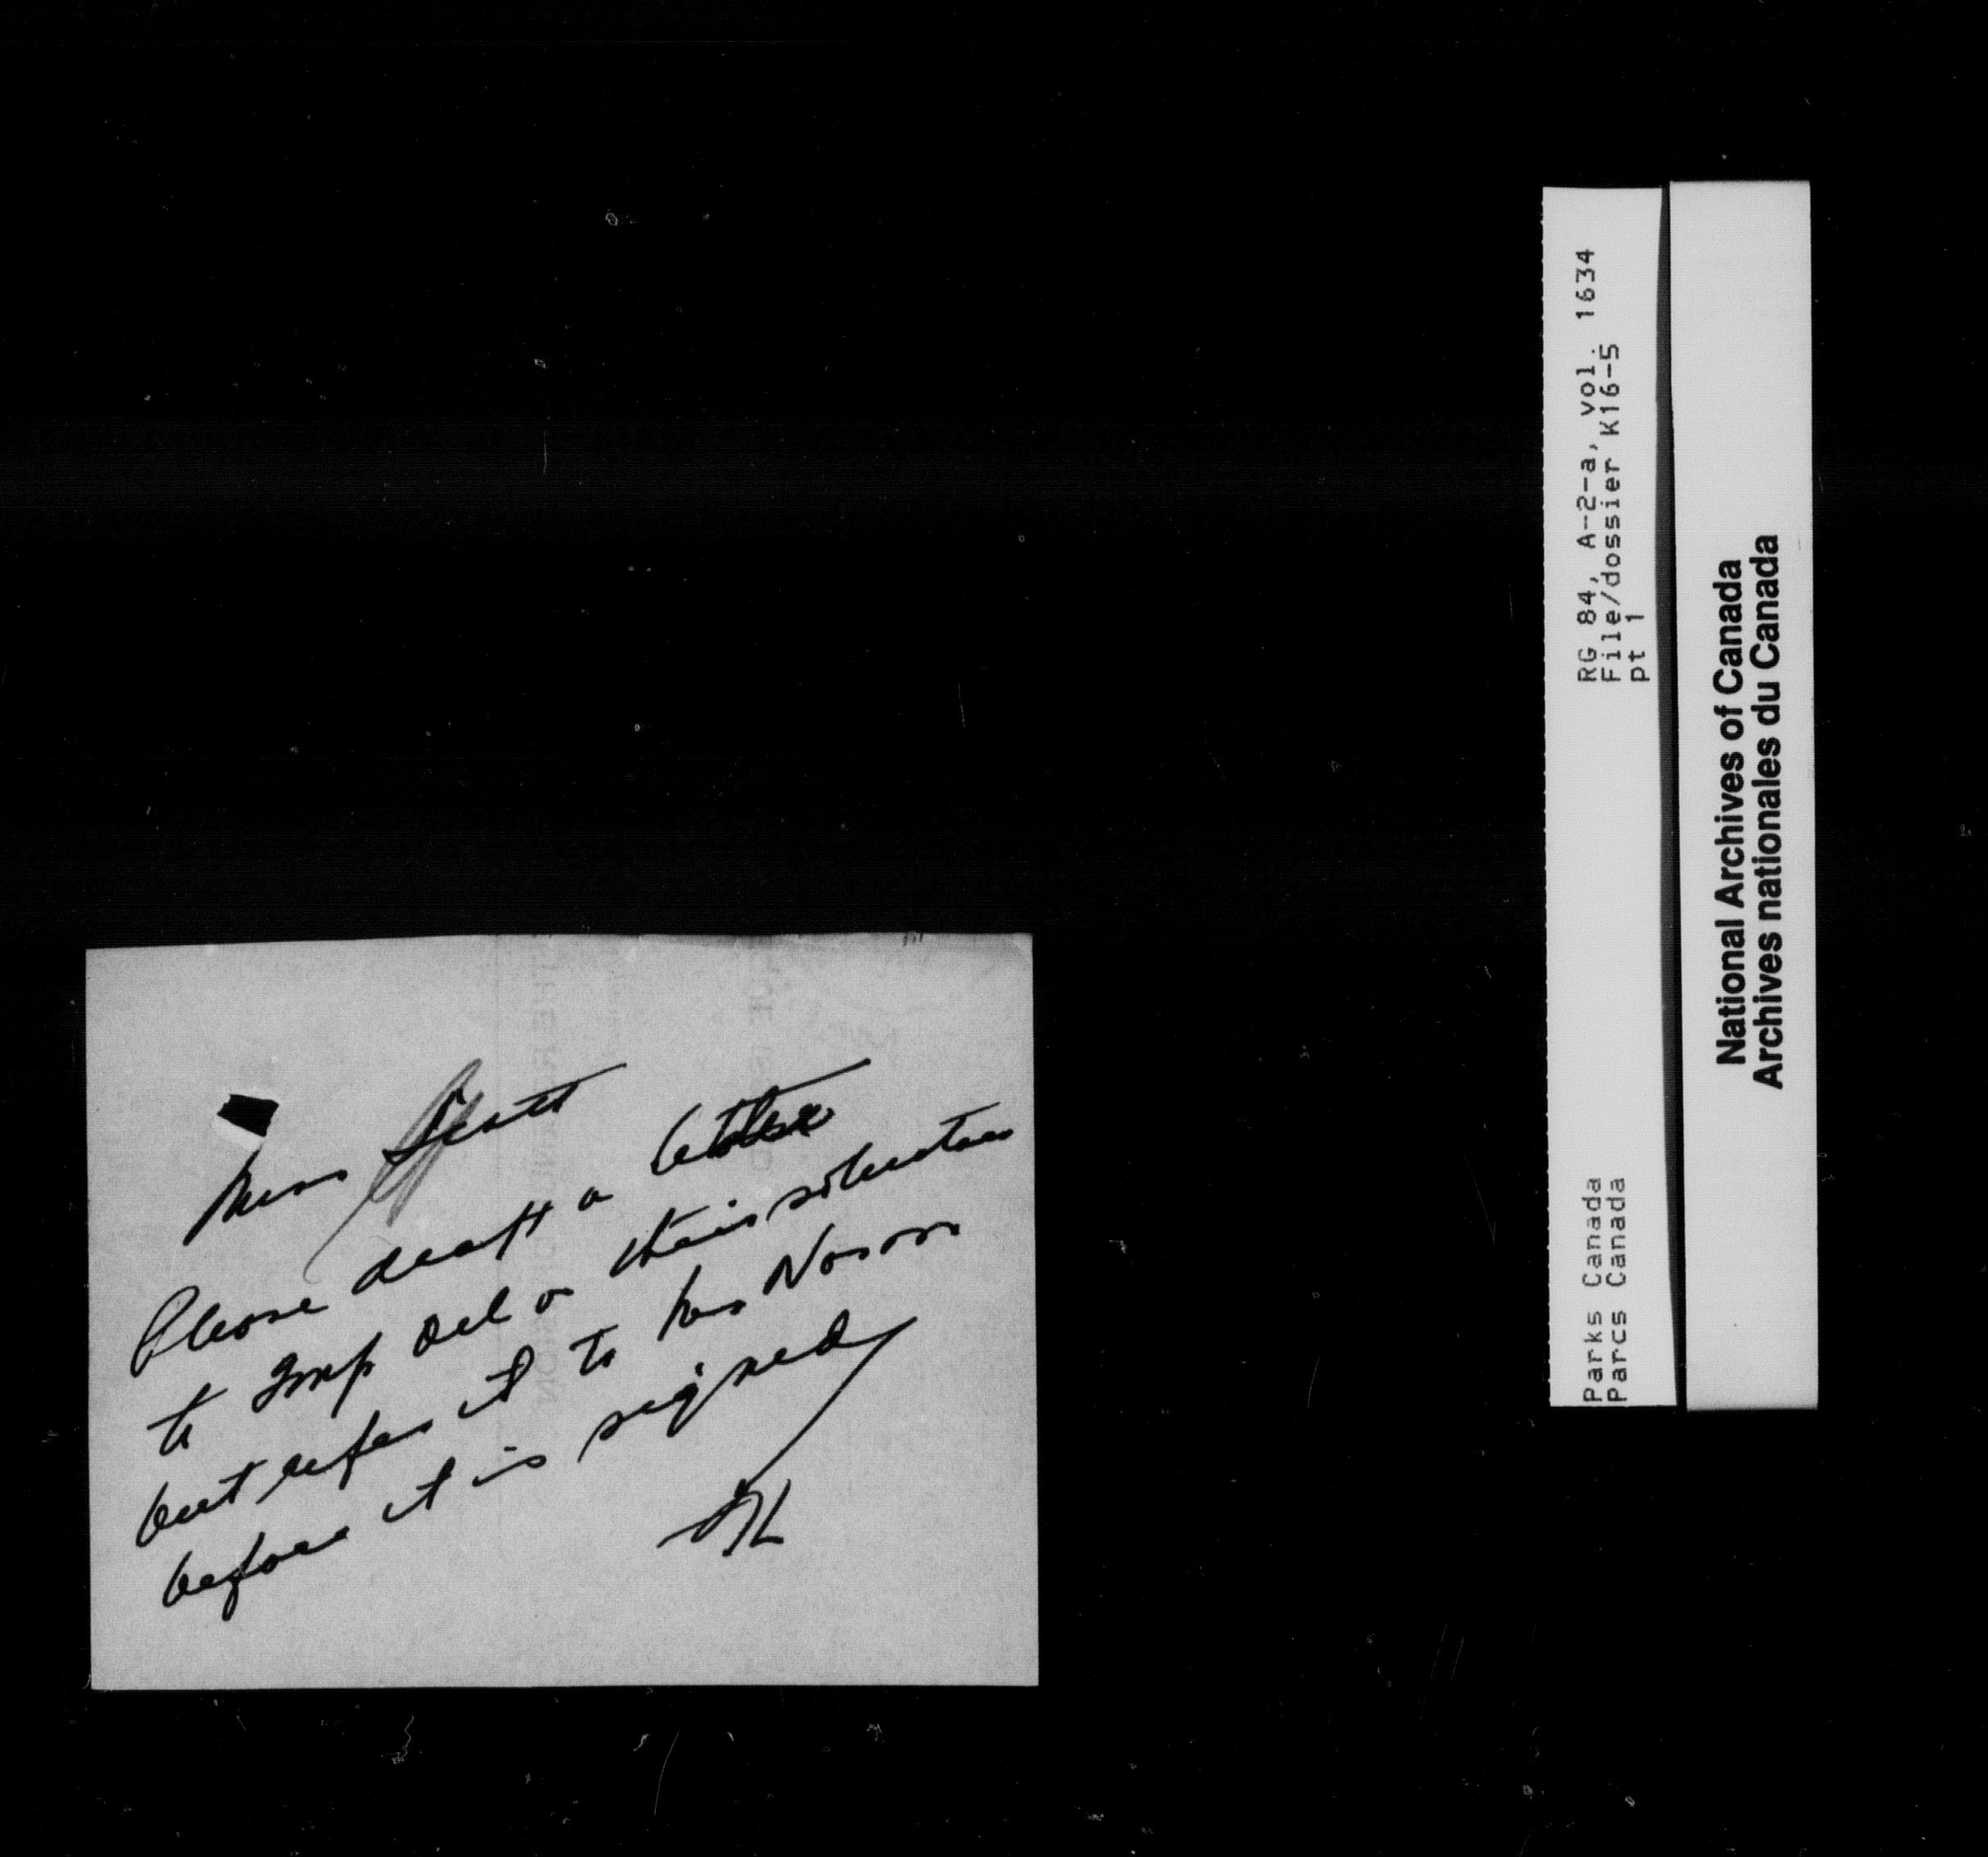 Miss Scott
Please draft a letter
to Imp Oil or their solicitors
but refer it to
before it is signed
RG 84, A-2-a, vol. 1634
File/dossier K16-5
pt 1
Parks Canada
Parcs Canada
National Archives of Canada
Archives nationales du Canada